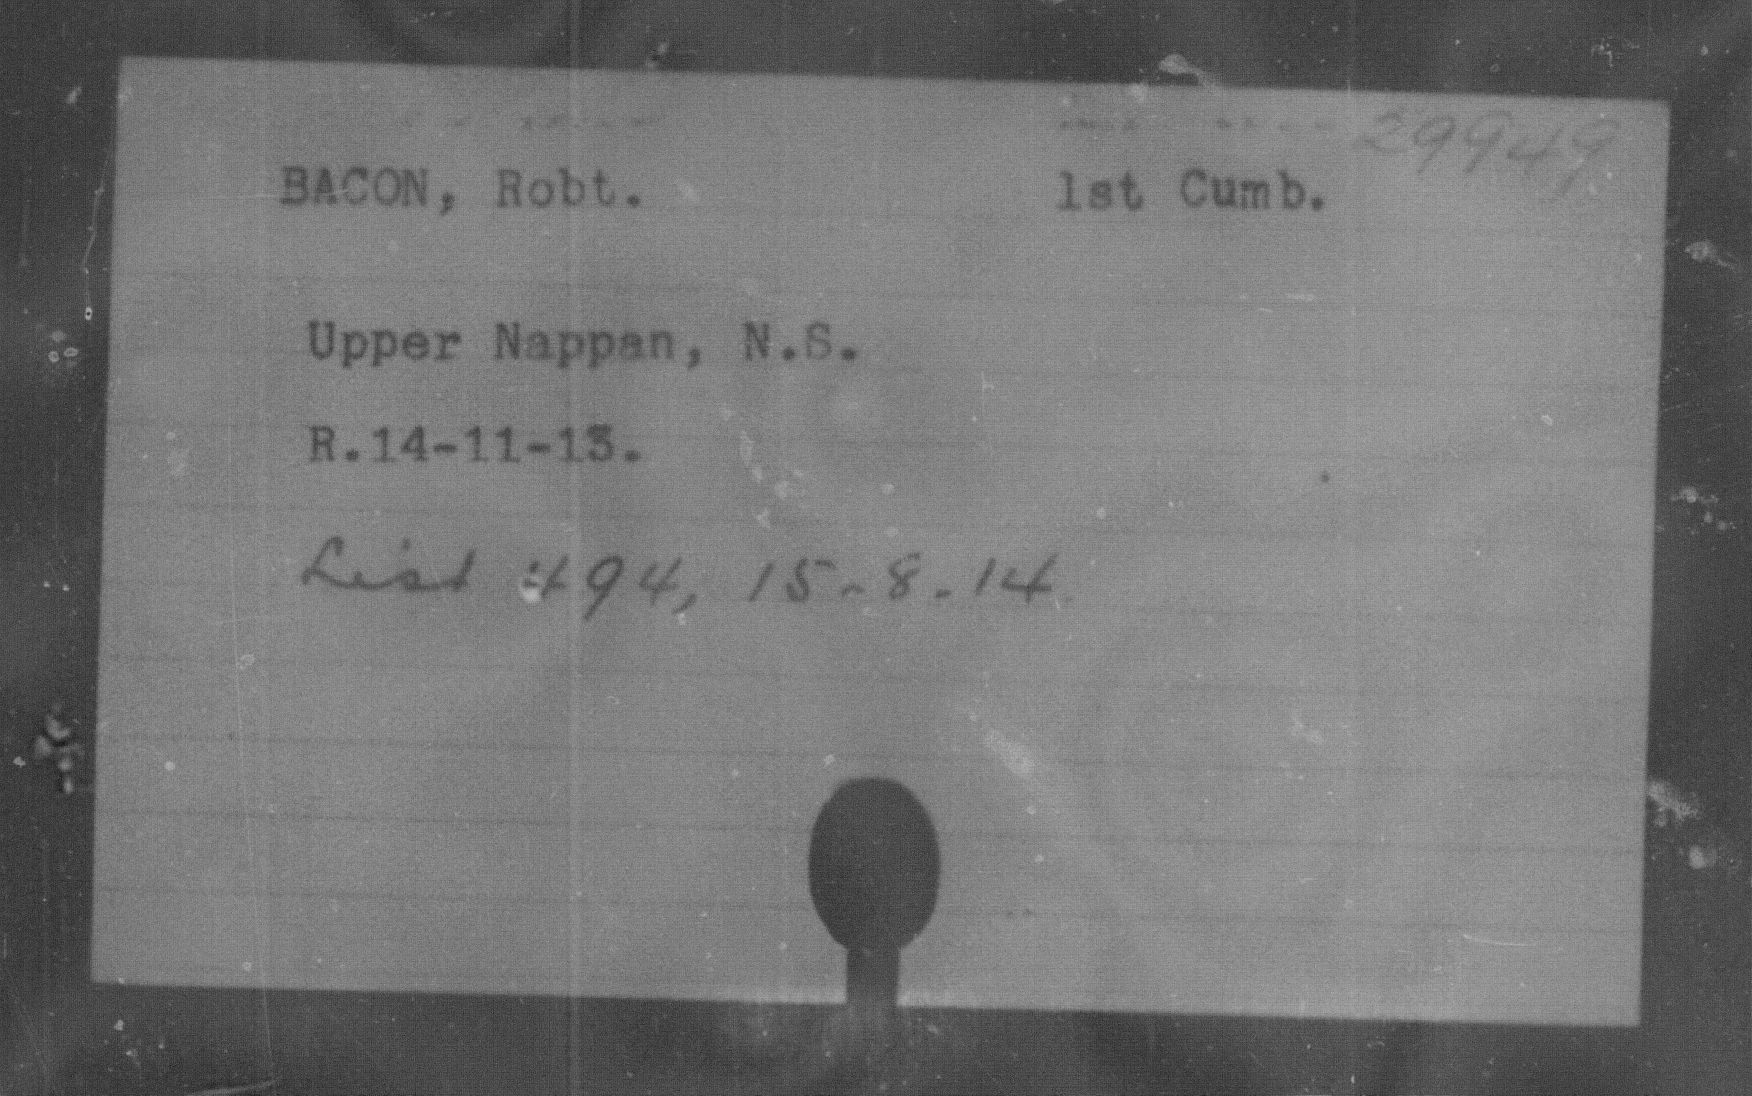 29949
BACON, Robt. 1st Cumb.
Upper Nappan, N.S.
R.14-11-13.
List 494, 15-8-14